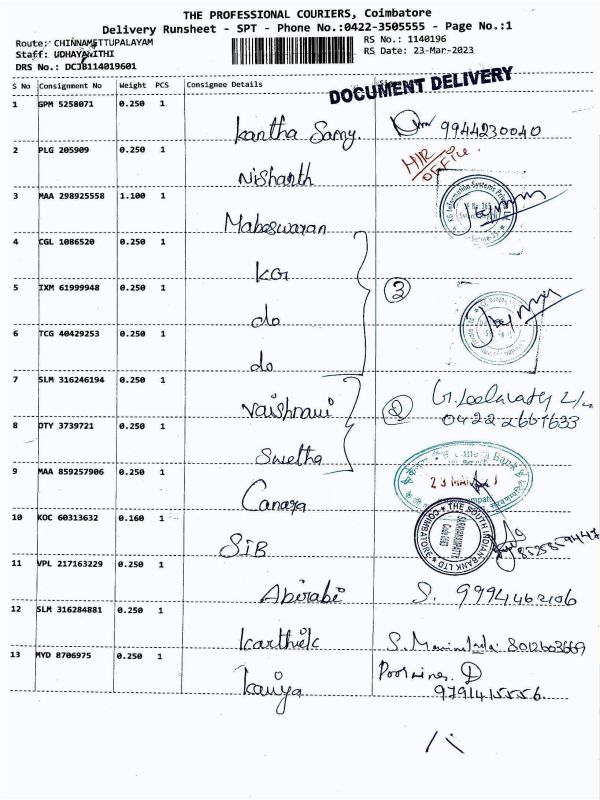 THE PROFESSIONAL COURIERS, Coimbatore
Delivery Runsheet - SPT - Phone No.:0422-3505555 - Page No.:1
Route: CHINNAMETTUPALAYAM
RS No.: 1140196
Staff: UDHAYANITHI
RS Date: 23-Mar-2023
DRS No.: DCJB114019601
S No Consignment No Weight PCS Consignee Details
DOCUMENT DELIVERY
1 GPM 5258071 0.250 1
Kantha Samy 9944230040
2 PLG 205909 0.250 1
HIR OFFICE
Nishanth
3 MAA 298925558 1.100 1
Maheswaran
4 CGL 1086520 0.250 1
KGI
5 IXM 61999948 0.250 1
3
do
6 TCG 40429253 0.250 1
do
7 SLM 316246194 0.250 1
Vaishnavi 2
8 OTY 3739721 0.250 1
Swetha
9 MAA 859257906 0.250 1
Canara
10 KOC 60313632 0.160 1
THE SOUTH INDIAN BANK LTD COIMBATORE
SIB
11 VPL 217163229 0.250 1
Abirabi S. 9994462106
12 SLM 316284881 0.250 1
Karthik 8012603669
13 MYD 8706975 0.250 1
Kaviya 9791415556